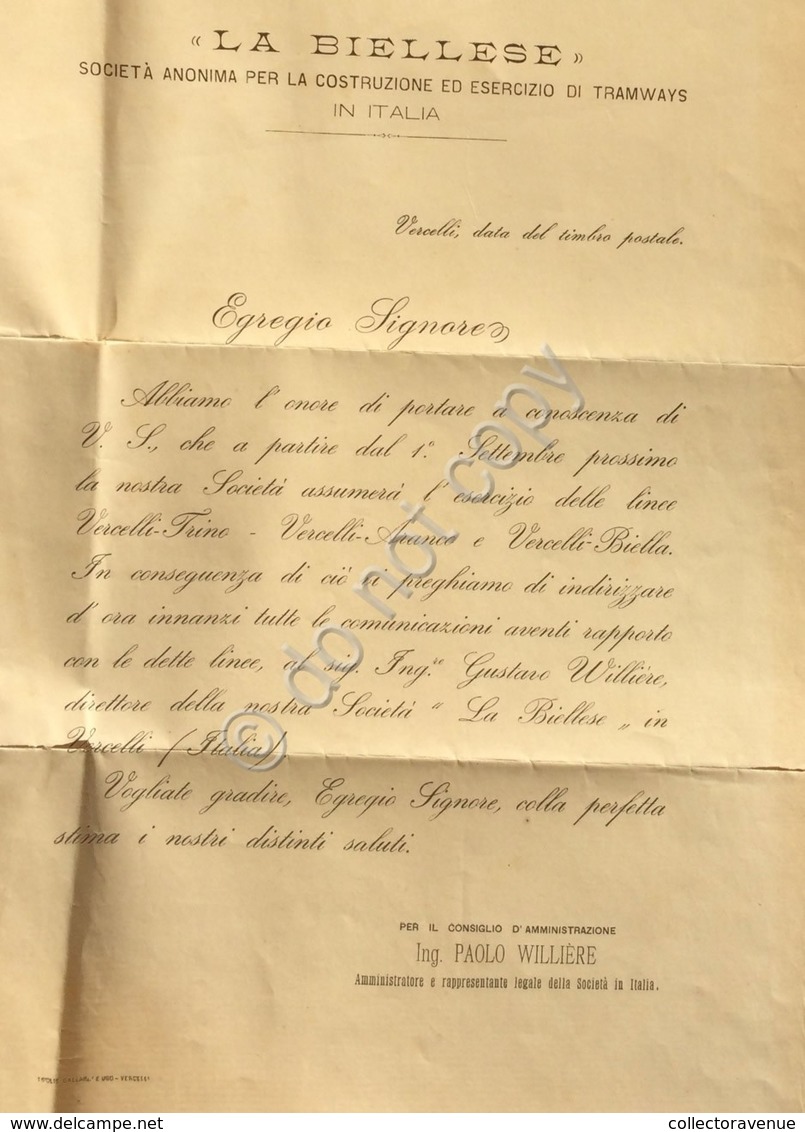 « LA BIELLESE »
SOCIETÀ ANONIMA PER LA COSTRUZIONE ED ESERCIZIO DI TRAMWAYS
IN ITALIA
Vercelli, data del timbro postale.
Egregio Signore
Abbiamo l'onore di portare a conoscenza di
V. S., che a partire dal 1.° Settembre prossimo
la nostra Società assumerà l'esercizio delle linee
Vercelli-Trino - Vercelli-Aranco e Vercelli-Biella.
In conseguenza di ciò vi preghiamo di indirizzare
d'ora innanzi tutte le comunicazioni aventi rapporto
con le dette linee, al sig. Ing.re Gustavo Willière,
direttore della nostra Società " La Biellese „ in
Vercelli (Italia).
Vogliate gradire, Egregio Signore, colla perfetta
stima i nostri distinti saluti.
PER IL CONSIGLIO D'AMMINISTRAZIONE
Ing. PAOLO WILLIÈRE
Amministratore e rappresentante legale della Società in Italia.
E UGO - VERCELLI
© do not copy
collectoravenue